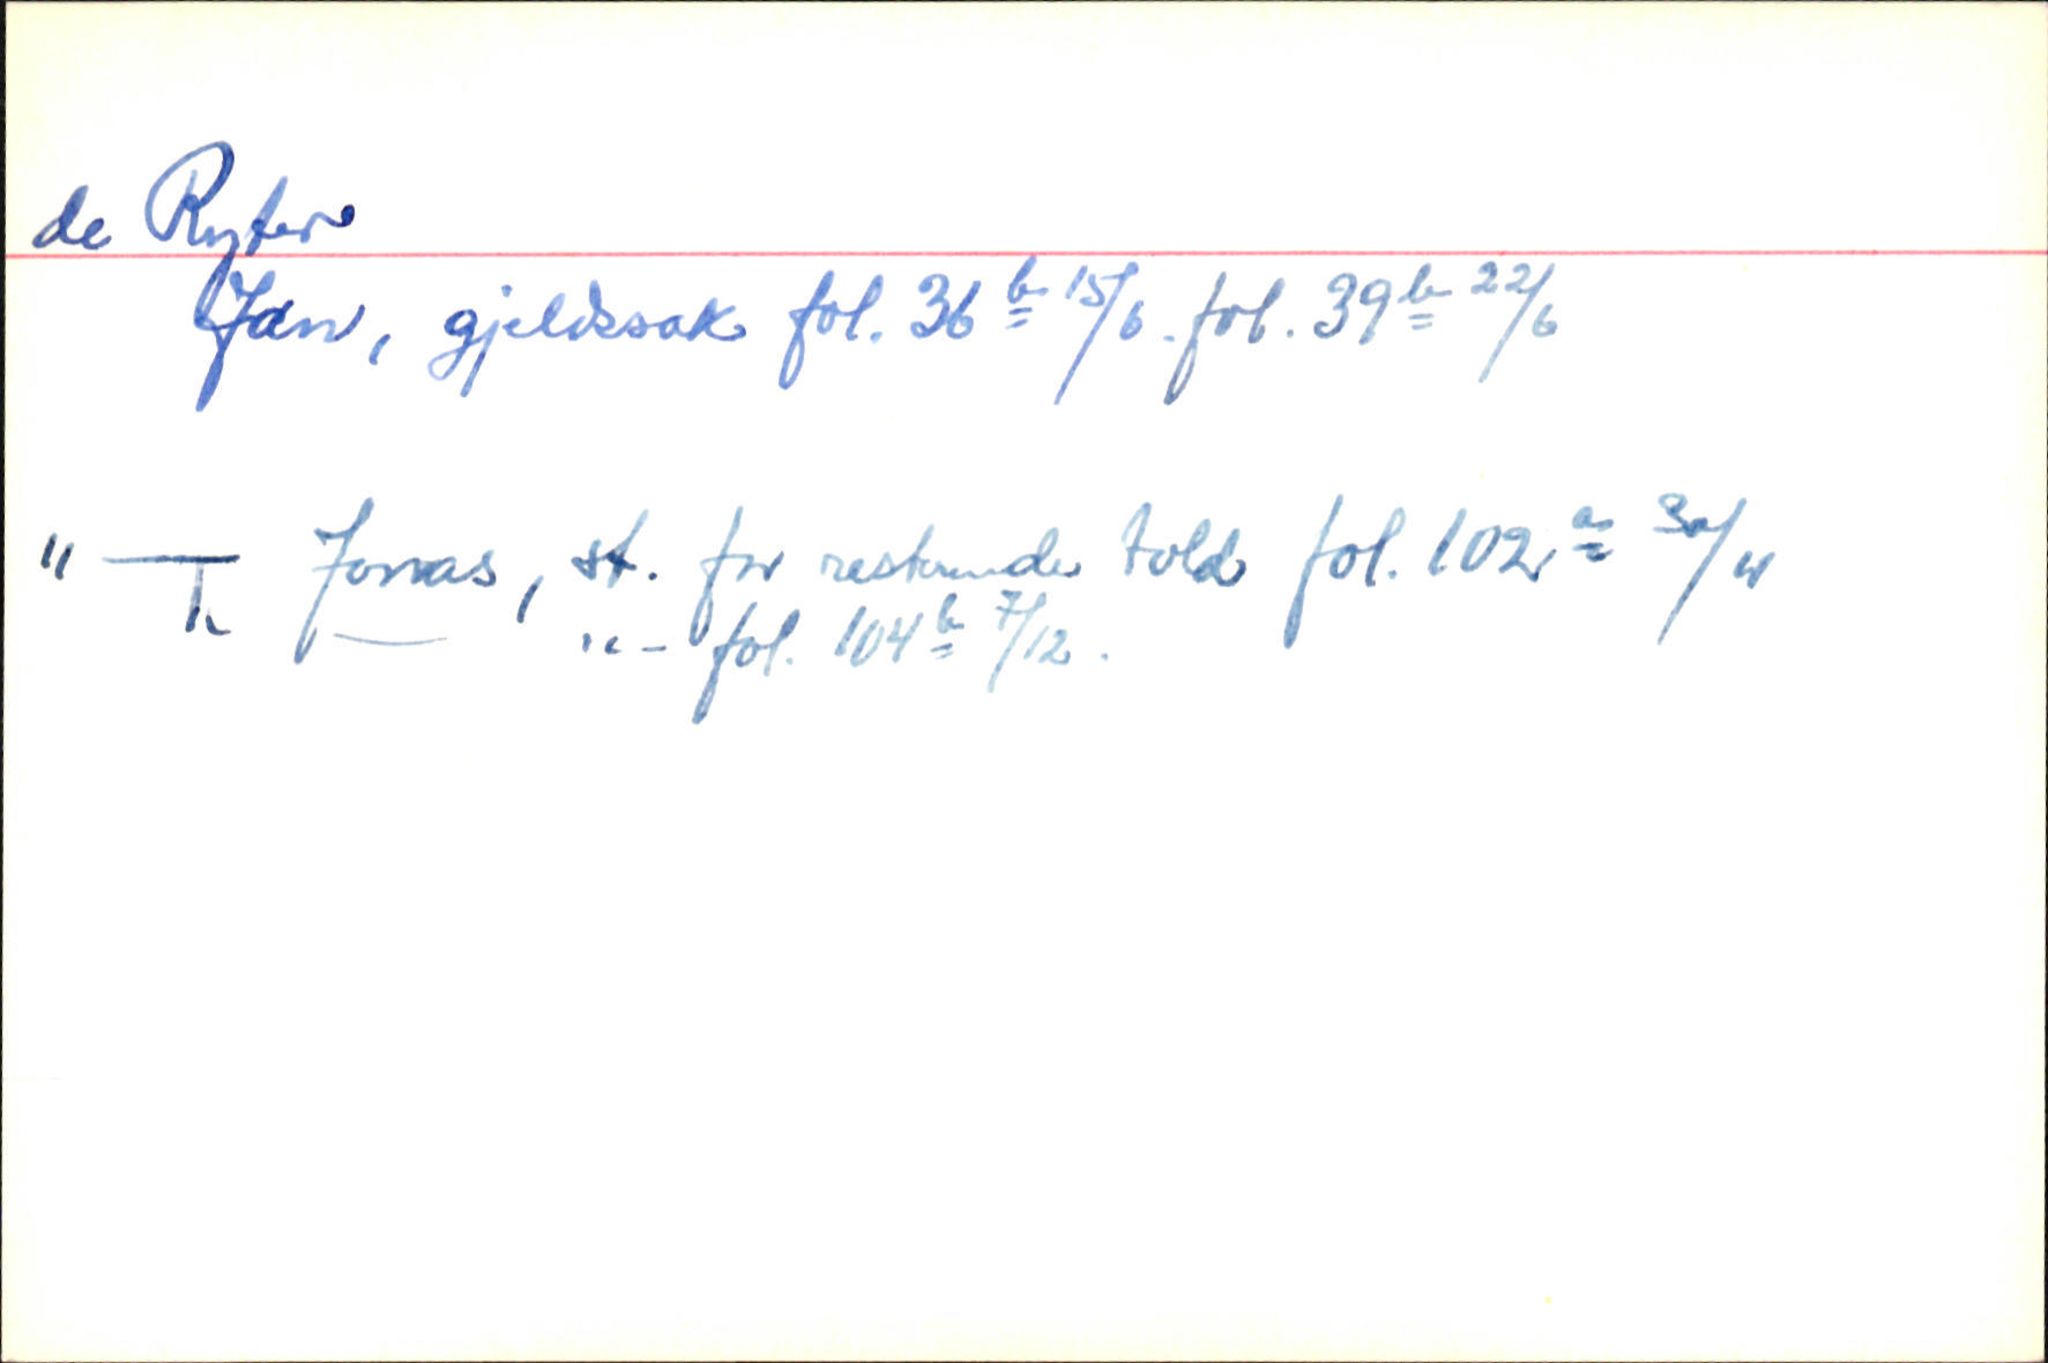 de Ryter
Jan, gjeldssak fol. 36 b 15/6. fol. 39 b 22/6
" — Jonas, st. for resterende told fol. 102 a 30/11
" - fol. 104 b 7/12.